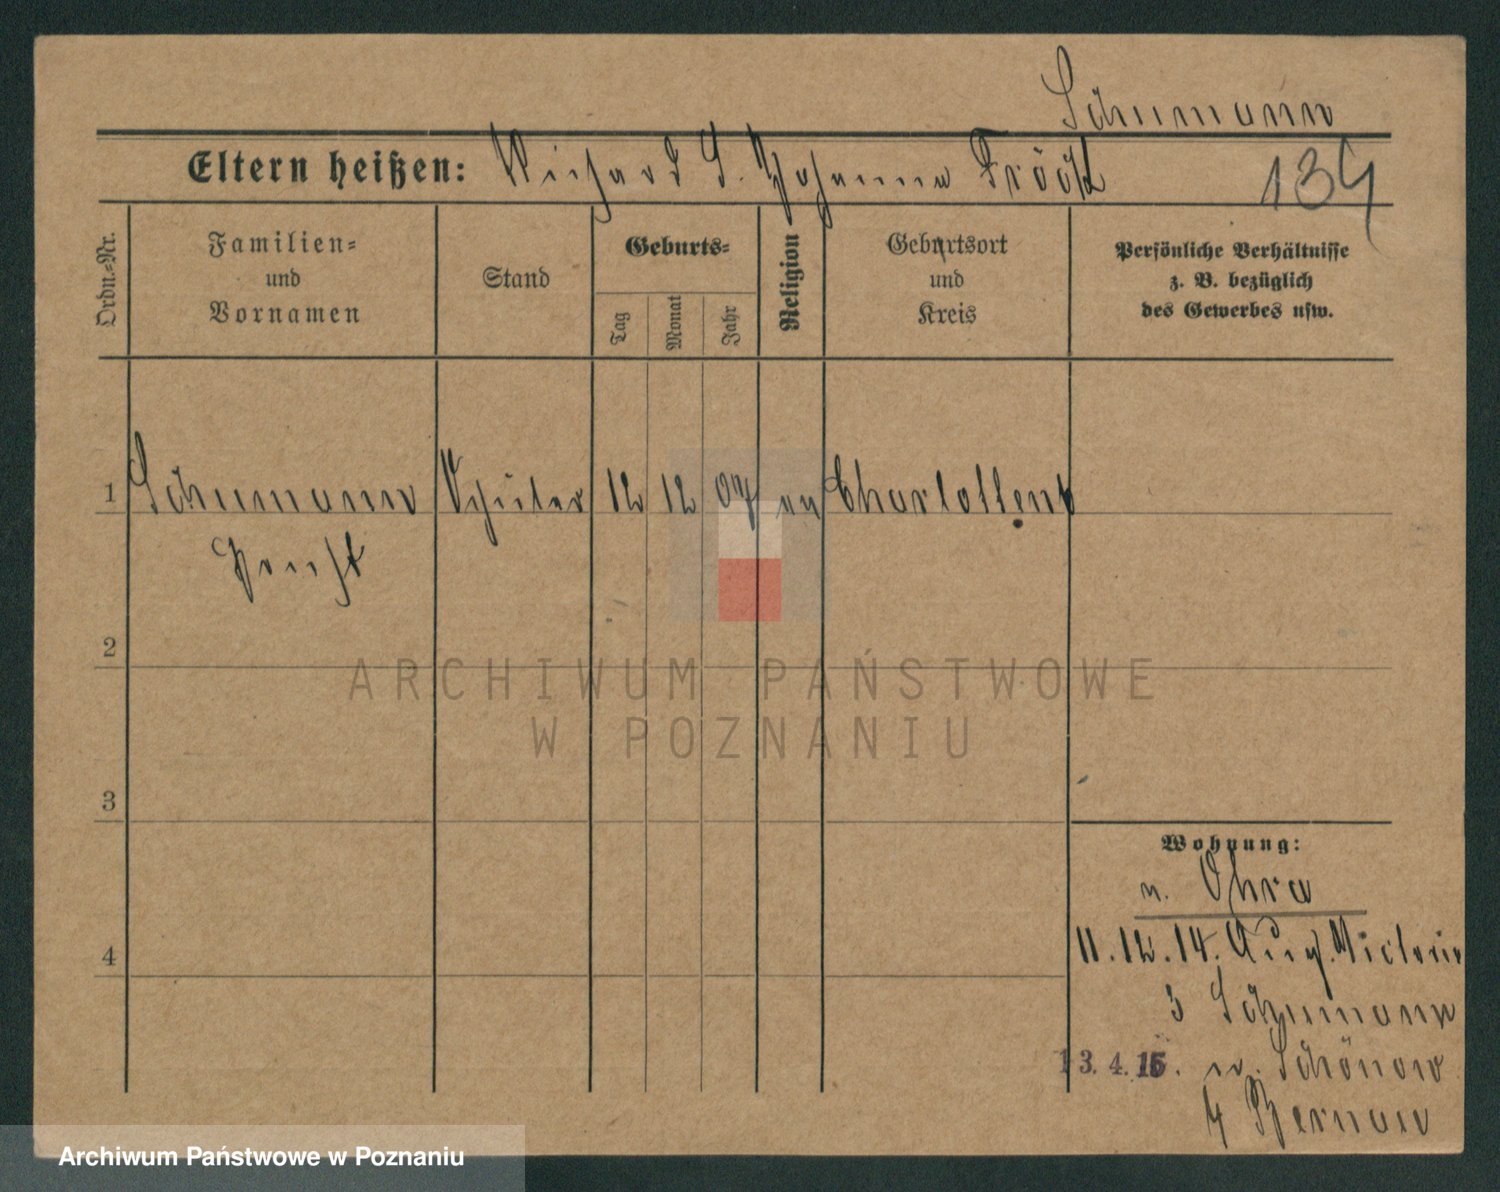 Schumann
Eltern heißen: Richard S. Johanna
134
Ordn.-Nr.
Familien-
und
Vornamen
Stand
Geburts-
Tag
Monat
Jahr
Religion
Geburtsort
und
Kreis
Persönliche Verhältnisse
z. B. bezüglich
des Gewerbes usw.
1 Schumann Schüler 12 12 07 ev Charlottenb
Horst
2
3
4
Wohnung:
n. Ohra
11.12.14. Aug. Victoria
3 Schumann
13.4.15. n. Schönow
Bernau
ARCHIWUM PAŃSTWOWE
W POZNANIU
Archiwum Państwowe w Poznaniu